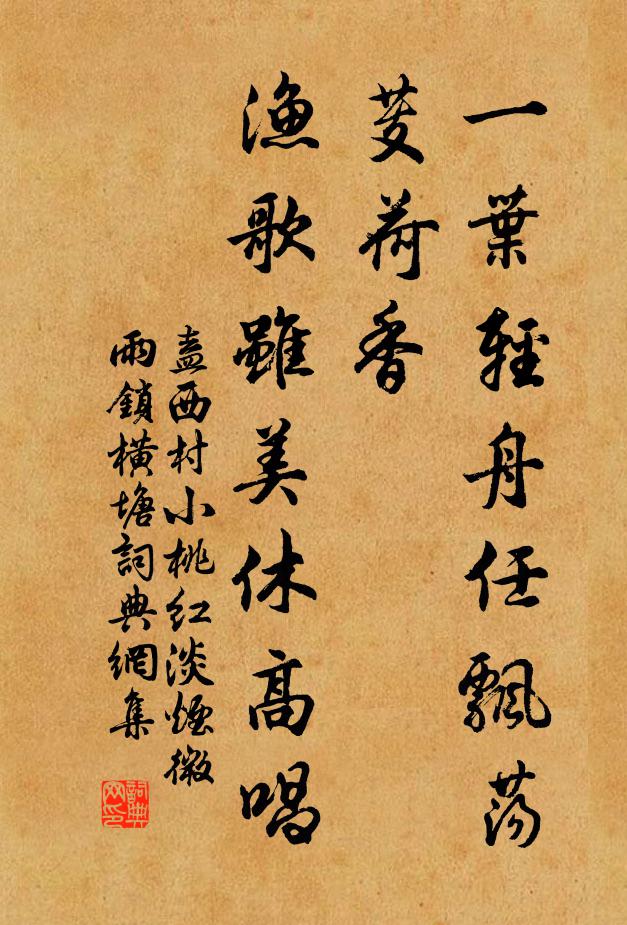 一葉輕舟任飄蕩
芰荷香
漁歌雖美休高唱
盍西村小桃紅淡煙微
雨鎖橫塘詞典網集
詞典網印